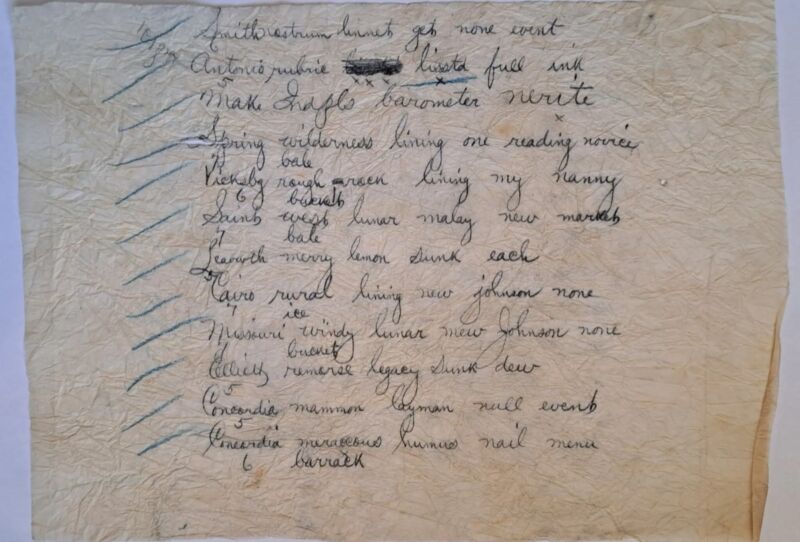 Smith rostrum linnet get none event
Antonio rubric linsta full ink
5
Make Indpls barometer nerite
Spring wilderness lining one reading novice
5 bale
Vicksbg rough rock lining my nanny
6 bucket
Saints west lunar malay new markets
7 bale
Leavwth merry lemon sunk each
5
Cairo rural lining new johnson none
7 ice
Missouri windy lunar mew Johnson none
bucket
Elliott remorse legacy sunk dew
5
Concordia mammon layman null events
5
Concordia meraccous humus nail menu
6 barrack